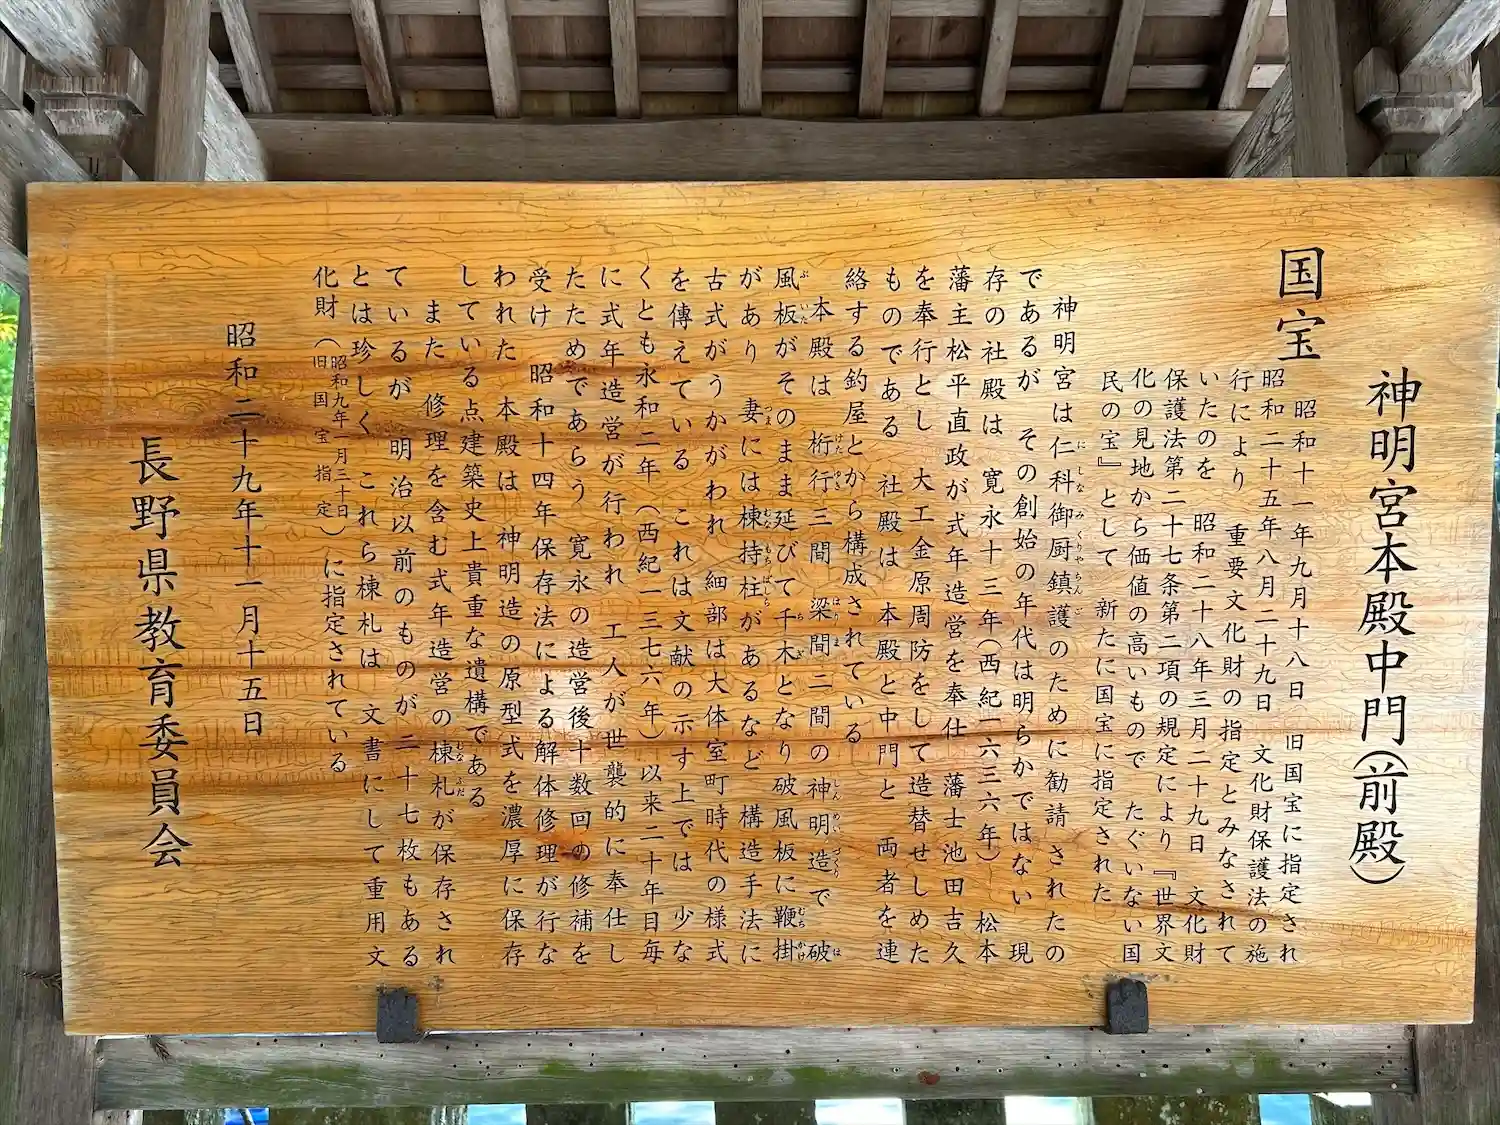 国宝
神明宮本殿中門(前殿)
昭和十一年九月十八日 旧国宝に指定され
昭和二十五年八月二十九日 文化財保護法の施
行により 重要文化財の指定とみなされて
いたのを 昭和二十八年三月二十九日 文化財
保護法第二十七条第二項の規定により『世界文
化の見地から価値の高いもので たぐいない国
民の宝』として 新たに国宝に指定された
神明宮は仁科御厨鎮護のために勧請されたの
であるが その創始の年代は明らかではない 現
存の社殿は 寛永十三年(西紀一六三六年) 松本
藩主松平直政が式年造営を奉仕 藩士池田吉久
を奉行とし 大工金原周防をして造替せしめた
ものである 社殿は 本殿と中門と 両者を連
絡する釣屋とから構成されている
本殿は 桁行三間 梁間二間の神明造で破
風板がそのまま延びて千木となり破風板に鞭掛
があり 妻には棟持柱があるなど 構造手法に
古式がうかがわれ 細部は大体室町時代の様式
を傳えている これは文献の示す上では 少な
くとも永和二年(西紀一三七六年)以来二十年目毎
に式年造営が行われ 工人が世襲的に奉仕し
たためであらう 寛永の造営後十数回の修補を
受け 昭和十四年保存法による解体修理が行な
われた 本殿は 神明造の原型式を濃厚に保存
している点建築史上貴重な遺構である
また 修理を含む式年造営の棟札が保存され
ているが 明治以前のものが 二十七枚もある
とは珍しく これら棟札は 文書にして重用文
化財(昭和九年一月三十日旧国宝指定)に指定されている
昭和二十九年十一月十五日
長野県教育委員会